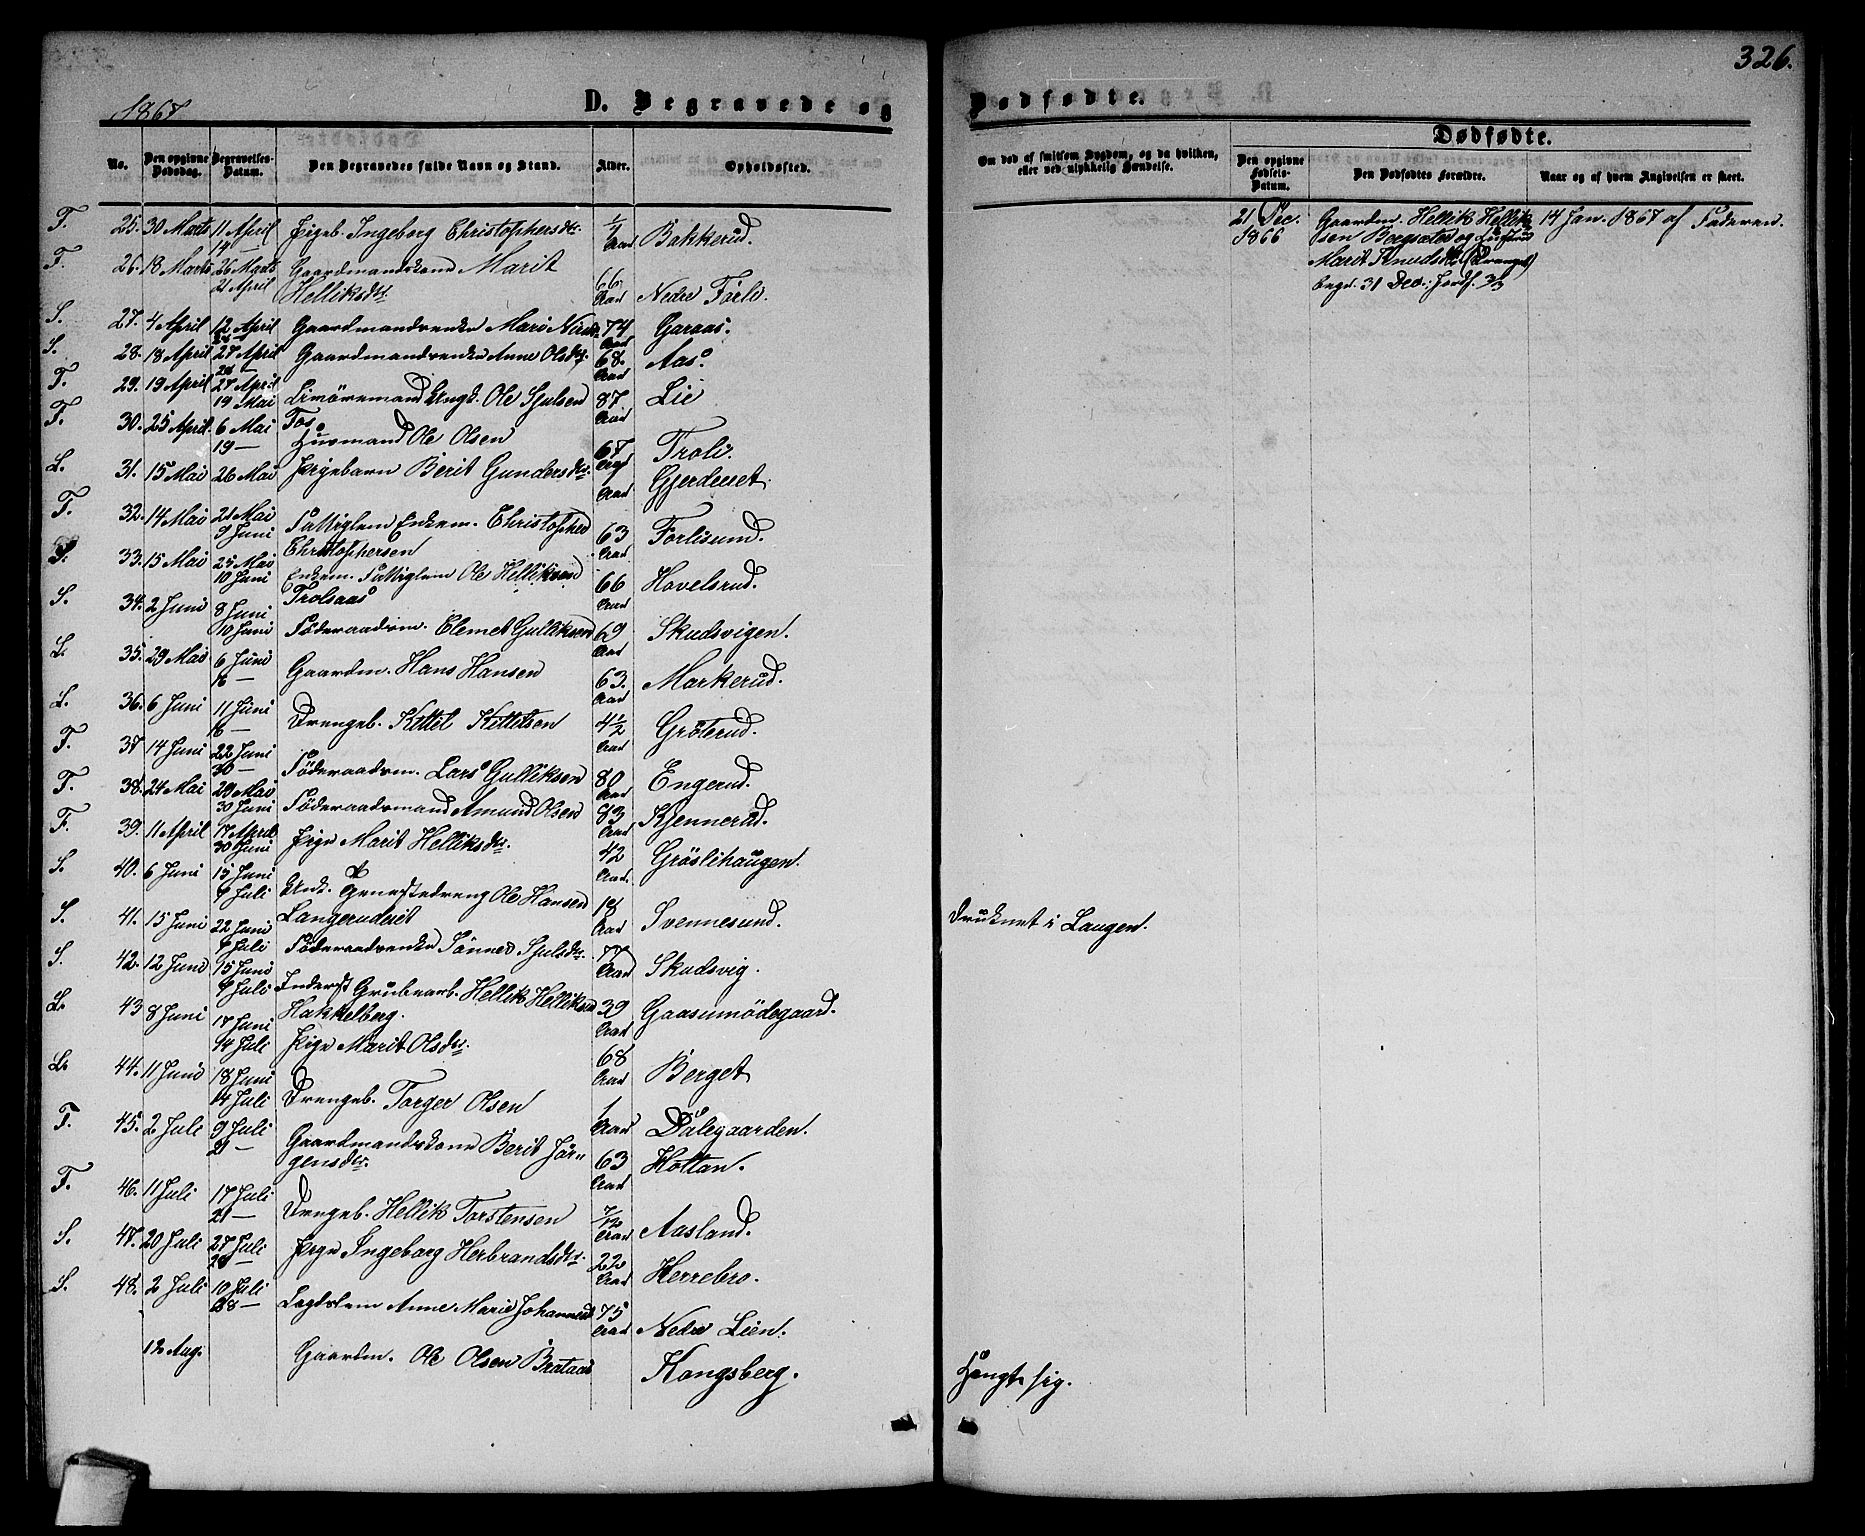 326.
1867
D. Begravede og
Dødfødte.
Dødfødte.
No.
Den opgivne Dødsdag.
Begravelses-Datum.
Den Begravedes fulde Navn og Stand.
Alder.
Opholdssted.
Om død af smitsom Sygdom, og da hvilken, eller ved ulykkelig Hændelse.
Den opgivne Fødsels-Datum.
Den Dødfødtes Forældre.
Naar og af hvem Angivelsen er skeet.
F. 25. 30 Marts 11 April 14 — Pigeb. Ingeborg Christophersdr. Aar Bakkerud.
F. 26. 18 Marts 26 Marts 21 April Gaardmandskone Marit Helliksdr. 66 Aar Nedre Førli.
S. 27. 4 April 12 April Gaardmandsenke Mari 74 Aar Garaas.
S. 28. 18 April 27 April 28 — Gaardmandsenke Anne Olsdr. 68. Aar Aas.
F. 29. 19 April 27 April 19 Mai Ole Sjulsen 87 Aar Lie
F. 30. 25 April. 6 Mai 19 — Husmand Ole Olsen 67 Aar Troli.
L. 31. 15 Mai 26 Mai Pigebarn Berit Gundersdr. Aar Gjerdeset.
F. 32. 14 Mai 21 Mai 9 Juni Fattiglem Enkem. Christopher Christophersen 63 Aar Forlisund.
S. 33. 15 Mai 25 Mai 10 Juni Enkem. Fattiglem Ole Helliksen Trolsaas 66 Aar Hovelsrud.
S. 34. 2 Juni 8 Juni 10 Juni Föderaadsm. Clemet Gulliksen 69 Aar Skudsvigen.
L. 35. 29 Mai 6 Juni 16 — Gaardm. Hans Hansen 63. Aar Markerud.
L. 36. 6 Juni 11 Juni 16 — Drengeb. Kittel Kittelsen 4 1/2 Aar Gröterud.
F. 37 14 Juni 22 Juni 30 — Föderaadsm. Lars Gulliksen 80 Aar Engerud.
F. 38. 24 Mai 29 Mai 30 Juni Föderaadsmand Amund Olsen 83 Aar Kjennerud.
F. 39. 11 April 17 April 30 Juni Pige Marit Helliksdr. 42 Aar. Gröslihaugen.
S. 40. 6 Juni 15 Juni 7 Juli Ungk. Tjenestedreng Ole Hansen Langerudeiet 18 Aar Svennesund.
S. 41. 15 Juni 22 Juni 7 Juli Föderaadsenke Sönnev Sjulsdr. 77 Aar Skudsvig.
S. 42. 12 Juni 15 Juni 7 Juli Inderst Grubearb. Hellik Helliksen Hakkelberg. 39 Aar Gaasumödegaard.
L. 43 8 Juni 17 Juni 14 Juli Pige Marit Olsdr. 68 Aar Berget
L. 44. 11 Juni 18 Juni 14 Juli Drengeb. Torger Olsen 1 Aar Dalegaarden.
F. 45. 2 Juli 9 Juli 21 — Gaardmandskone Berit Jörgensdr. 63 Aar Hottan.
F. 46. 11 Juli 17 Juli 21 — Drengeb. Hellik Torstensen 7/12 Aar Aasland.
S. 47. 20 Juli 27 Juli 28 — Pige Ingeborg Herbrandsdr. 22 Aar Herrebro.
S. 48. 2 Juli 10 Juli 28 — Lægdslem Anne Marie 75 Aar Nedre Lien.
12 Aug. Gaardm. Ole Olsen Brataas Kongsberg.
Druknet i Laagen.
Hængte sig.
21 Dec. 1866
Gaardm. Hellik Helliksen Bergsæter og Hustru Marit Knudsdr. (Dreng) begr. 31 Dec: Jordf.
14 Jan. 1867 af Faderen.